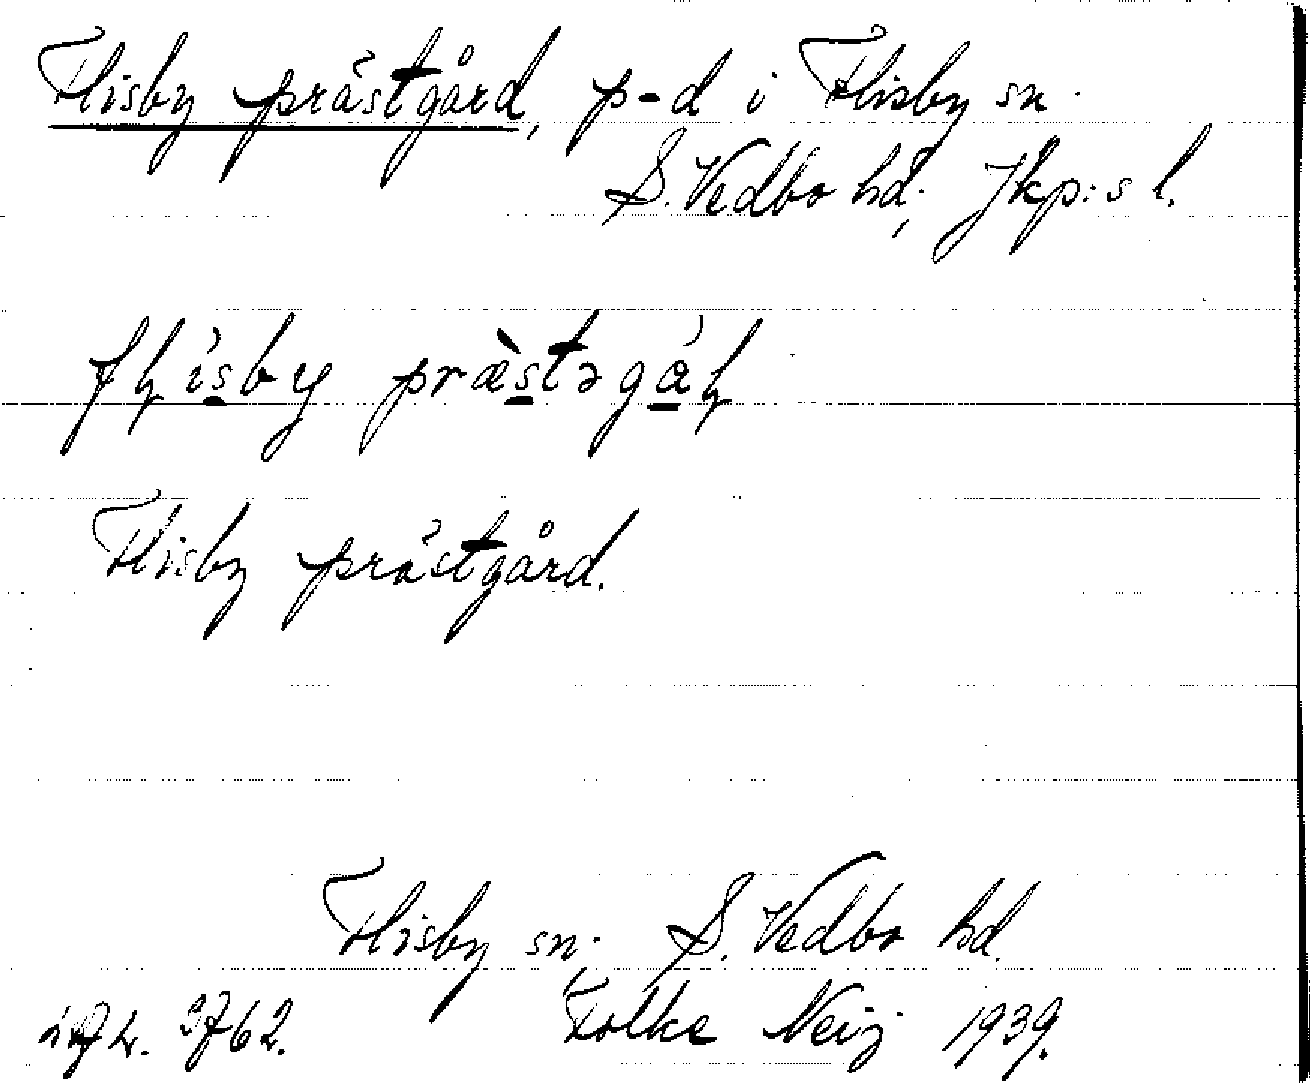 Flisby prästgård, p-d i Flisby sn.
S. Vedbo hd, Jkp:s l.
præ̀stəgá
Flisby prästgård.
Flisby sn, S. Vedbo hd.
Folke Neij 1939.